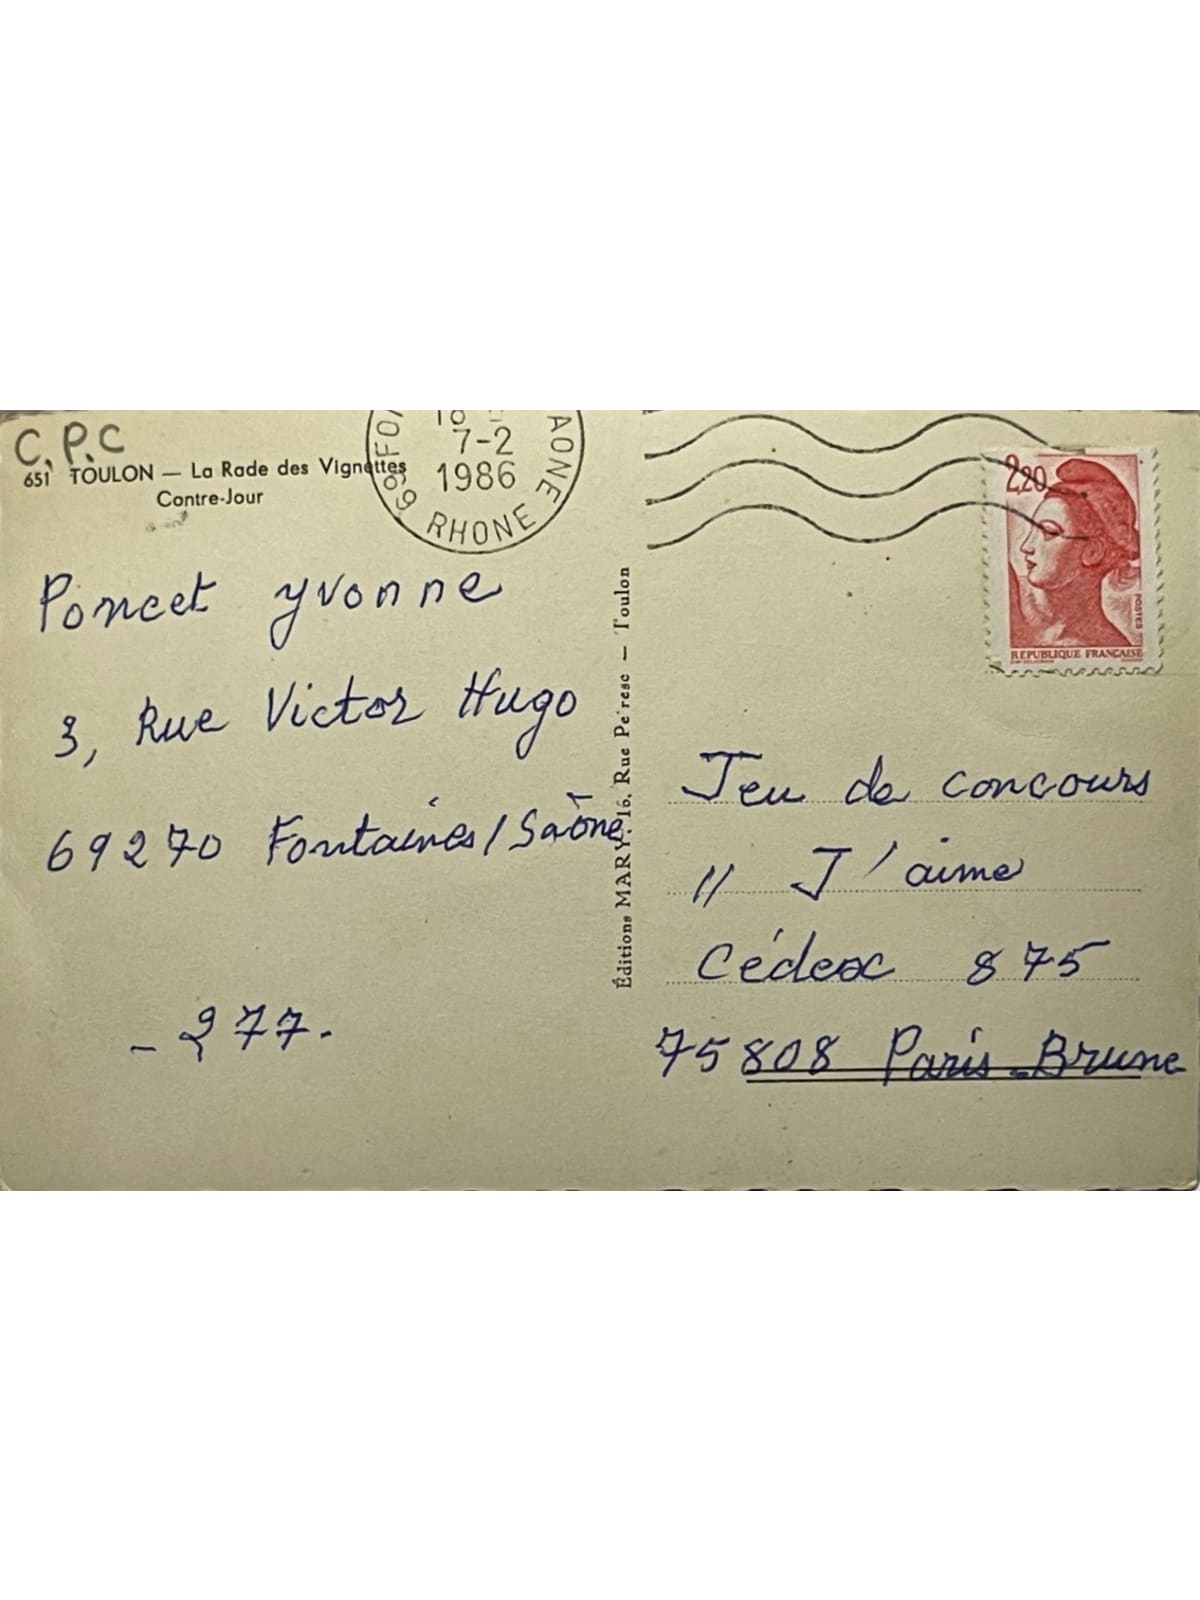 C.P.C
651 TOULON — La Rade des Vignettes
Contre-Jour
7-2
1986
69 RHONE
Poncet Yvonne
3, Rue Victor Hugo
69270 Fontaines/Saône
- 277.
Éditions MARY, 16, Rue Peiresc — Toulon
2,20
POSTES
REPUBLIQUE FRANÇAISE
Jeu de concours
" J'aime
Cédex 875
75808 Paris-Brune